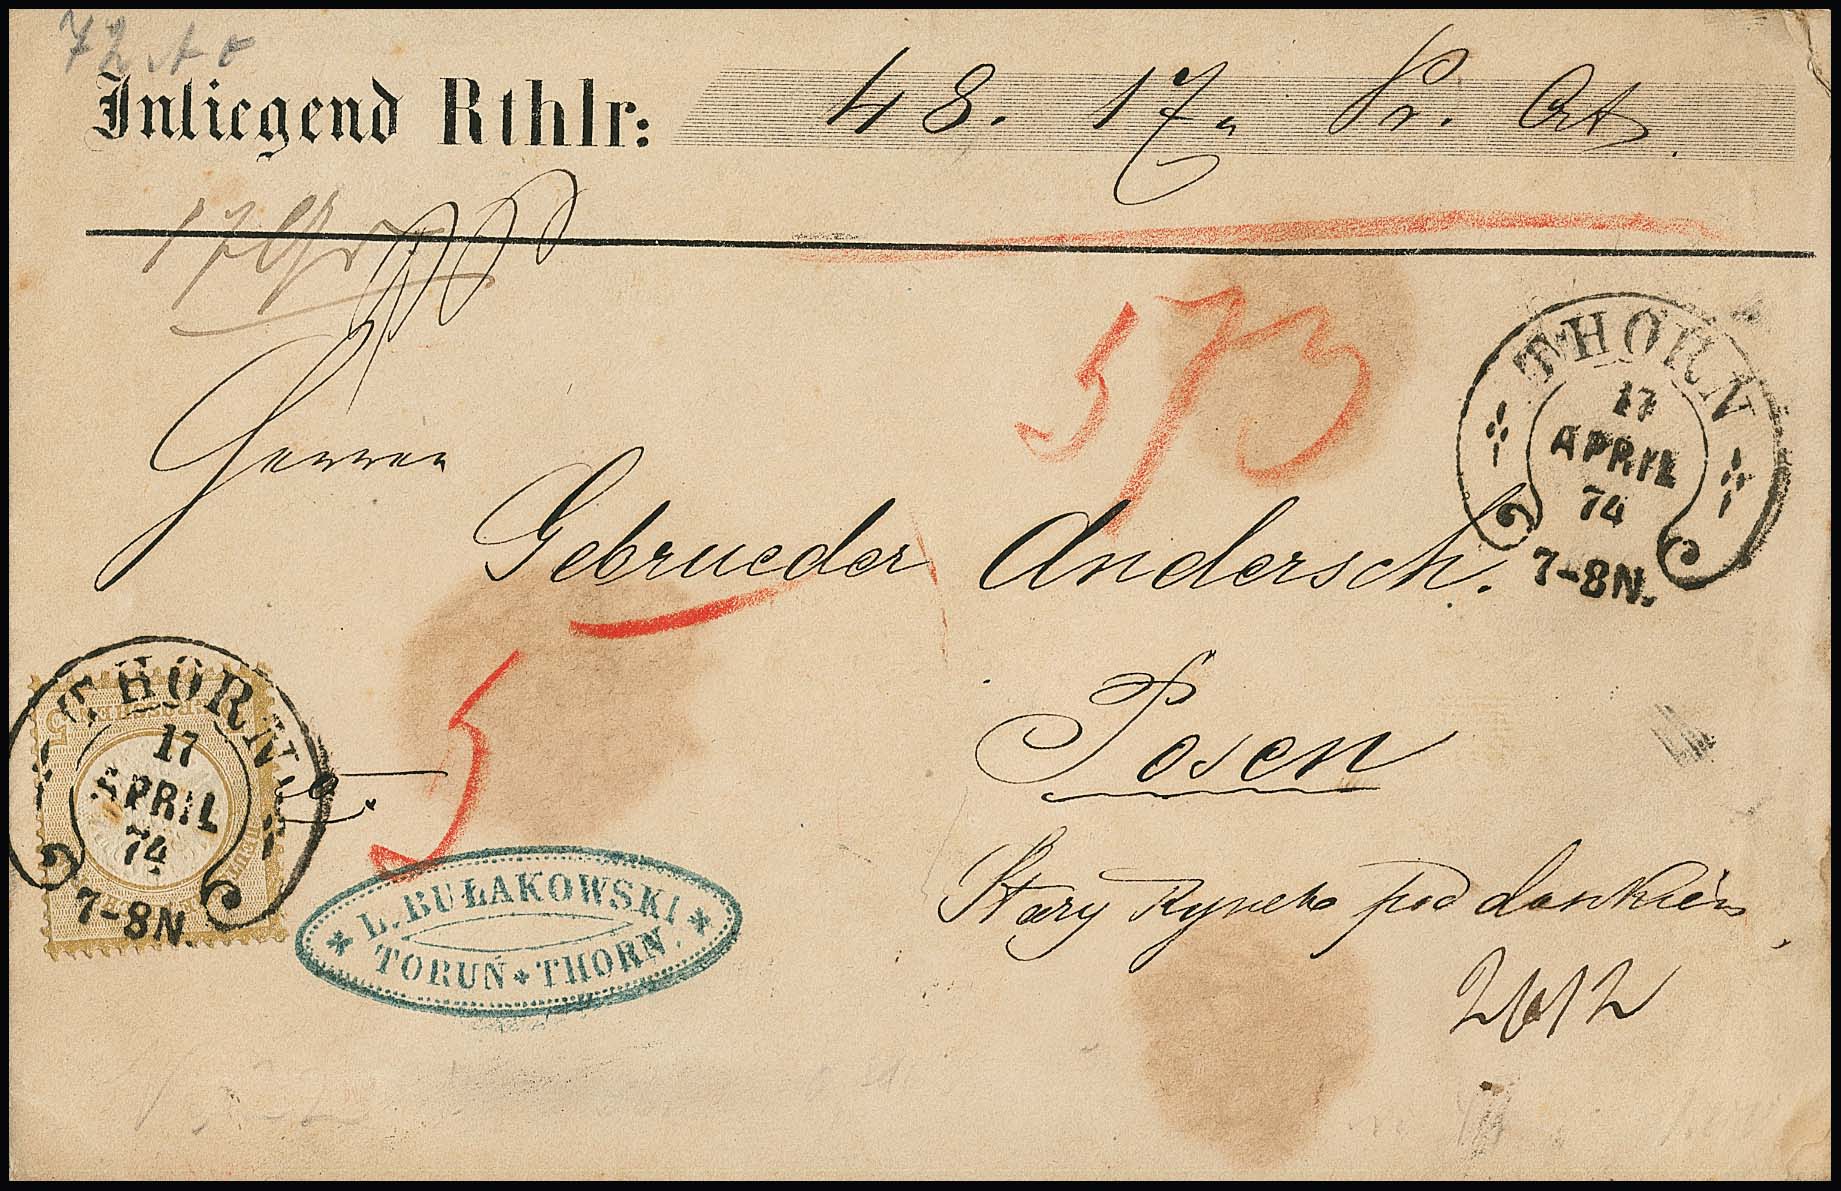 Inliegend Rthlr: 48. 17. Pr. Crt.
573
THORN
17
APRIL
74
7-8N.
Herren
Gebrueder Andersch.
Posen
5
THORN
17
APRIL
74
7-8N.
L. BUŁAKOWSKI
TORUŃ * THORN.
Stary Rynek pod